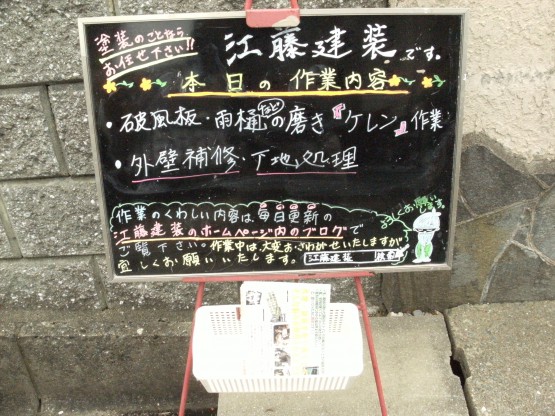 塗装のことなら
お任せ下さい!!
江藤建装です。
本日の作業内容
・破風板・雨樋などの磨き『ケレン』作業
・外壁補修・下地処理
作業のくわしい内容は、毎日更新の
江藤建装のホームページ内のブログで
ご覧下さい。作業中は、大変おさわがせいたしますが
宜しくお願いいたします。
江藤建装
よろしくお願いします